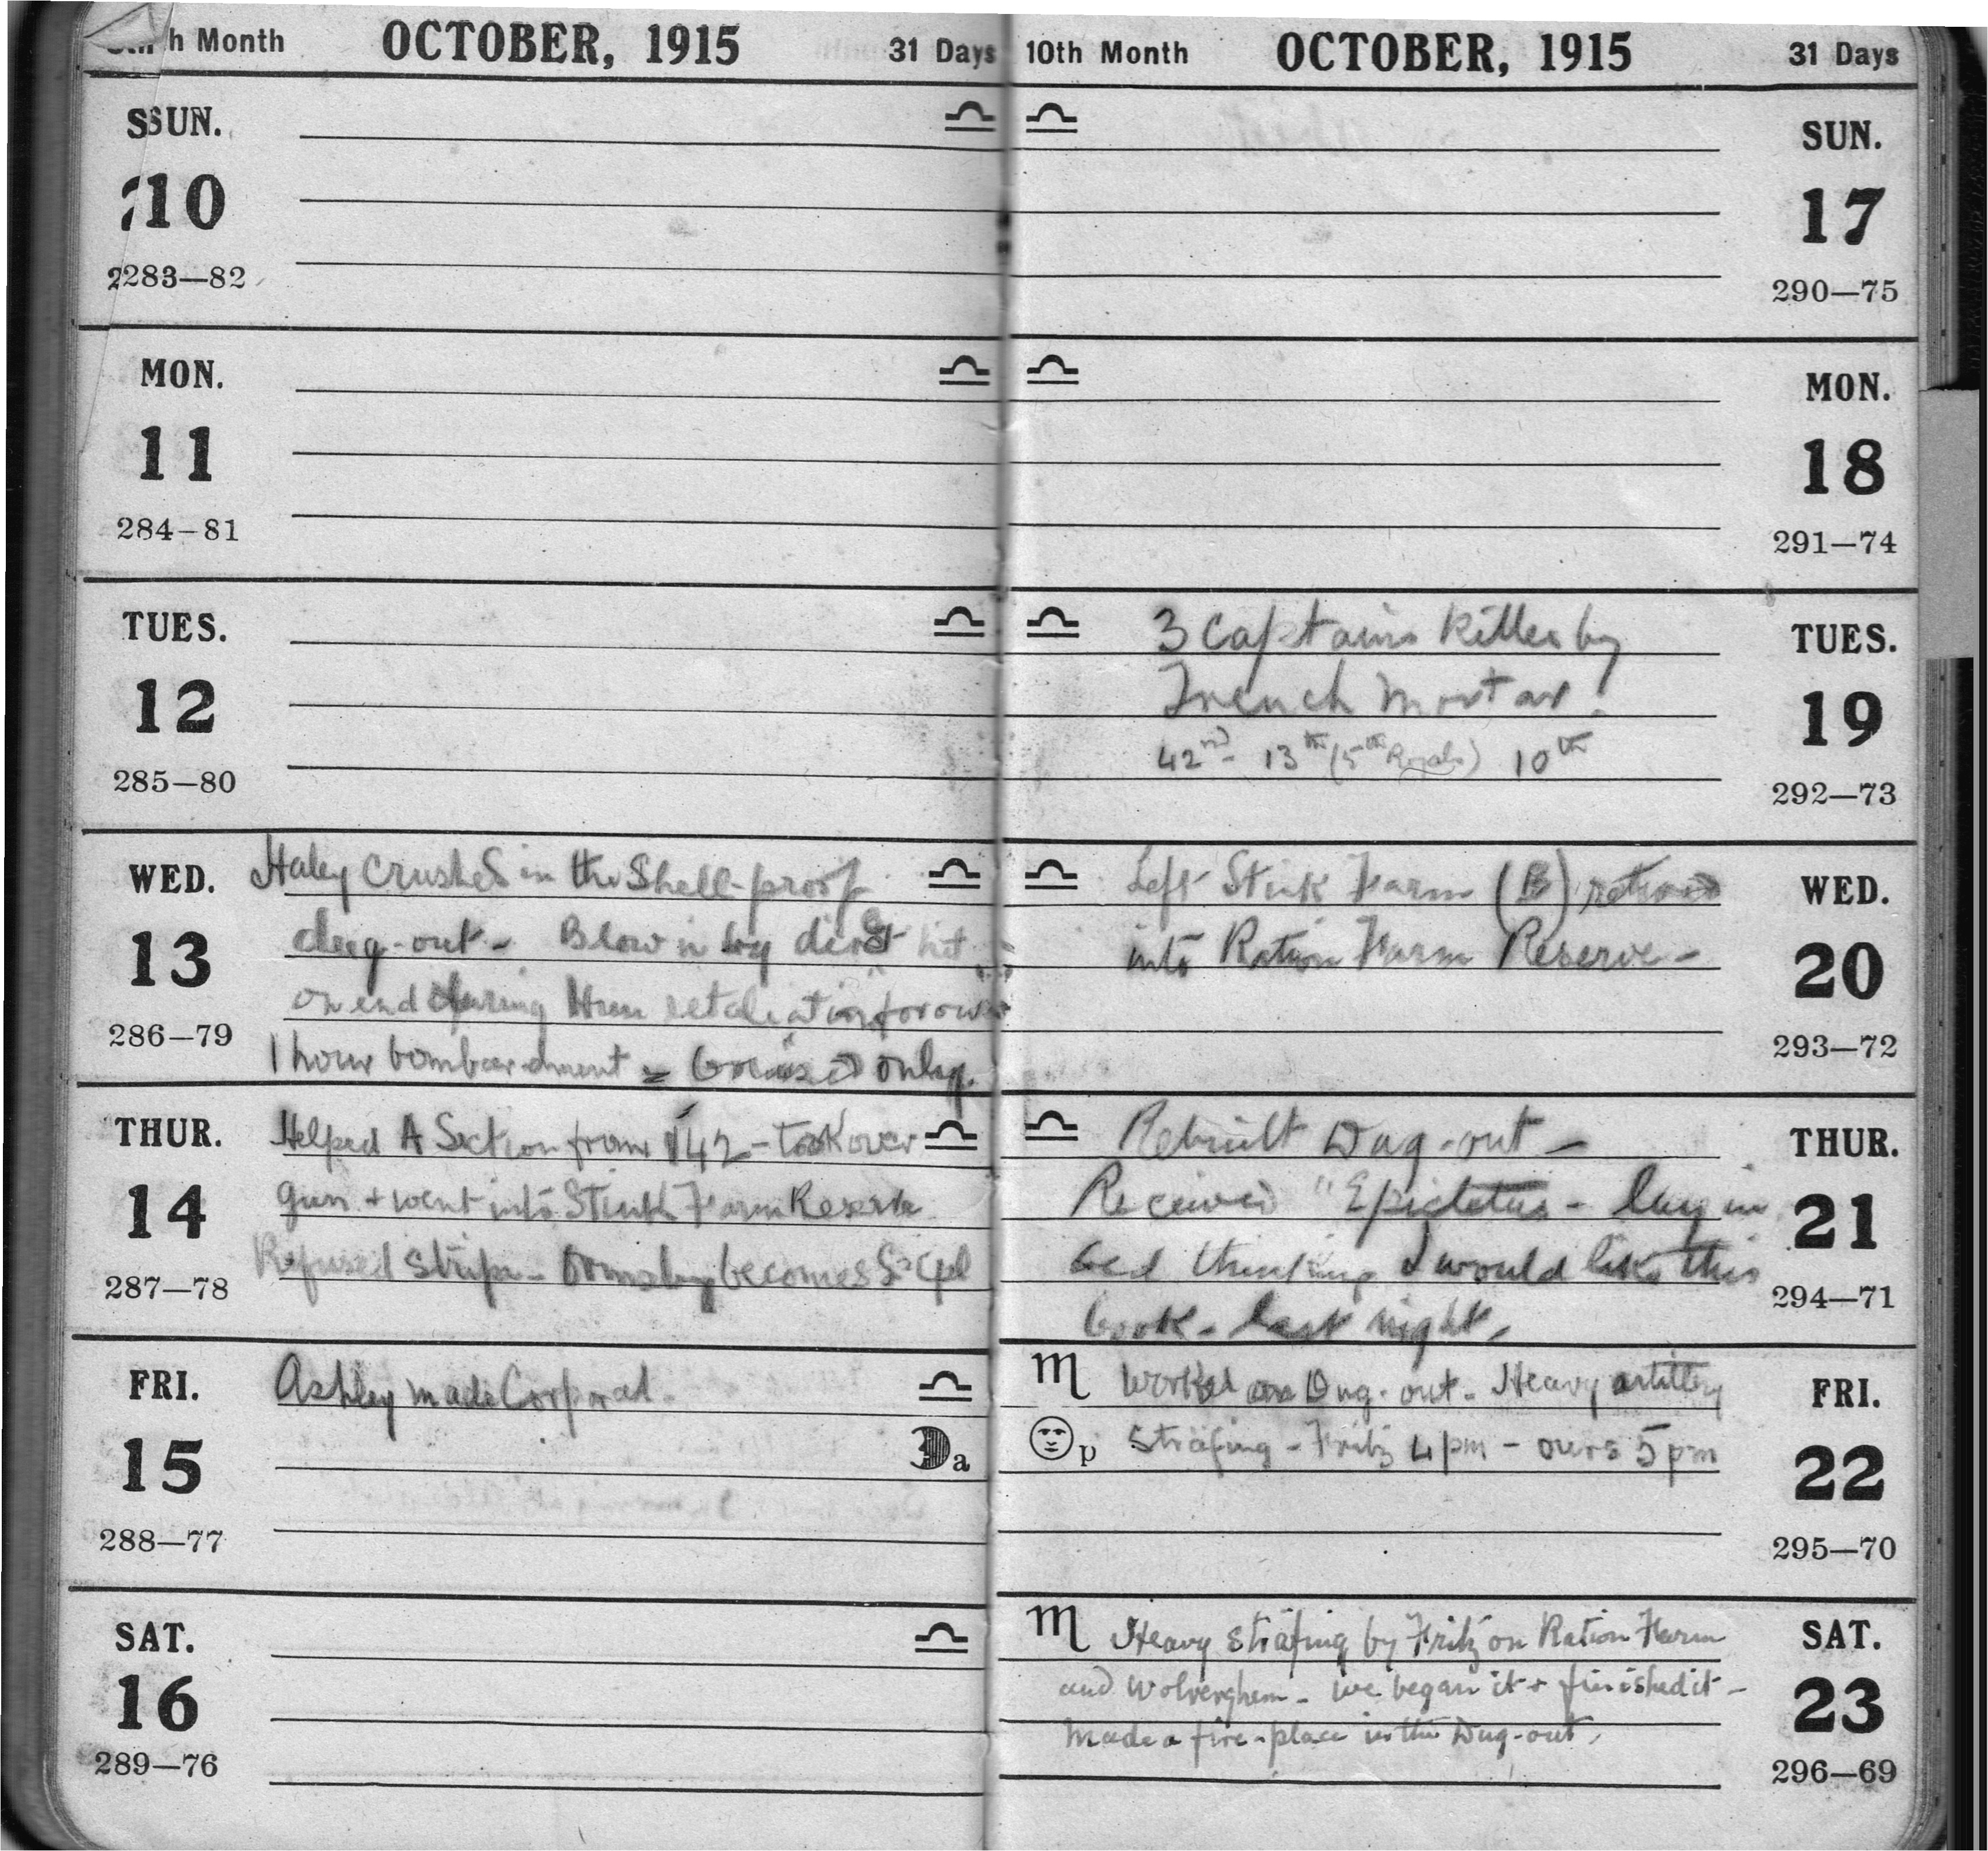 h Month OCTOBER, 1915 31 Days
SUN.
10
283—82
MON.
11
284—81
TUES.
12
285—80
WED.
13
286—79
Haley crushed in the Shell-proof
dug-out - Blow in by direct hit
on end during Hun retaliation for our
1 hour bombardment = bruised only.
THUR.
14
287—78
Helped A Section from 142 - took over
gun + went into Stink Farm Reserve
Refused stripe - Ormsby becomes Cpl
FRI.
15
288—77
Ashley made Corporal.
a
SAT.
16
289—76
10th Month OCTOBER, 1915 31 Days
SUN.
17
290—75
MON.
18
291—74
TUES.
19
292—73
3 Captains killed by
Trench Mortar!
42nd - 13th (5th Royals) 10th
WED.
20
293—72
Left Stink Farm (B)
into Ration Farm Reserve -
THUR.
21
294—71
Rebuilt Dug-out -
Received "Epictetus - lay in
bed thinking I would like this
book - last night.
FRI.
22
295—70
Worked on Dug-out. Heavy artillery
p
strafing - Fritz 4 pm - ours 5 pm
SAT.
23
296—69
Heavy strafing by Fritz on Ration Farm
and Wolverghem - we began it + finished it -
Made a fire-place in the Dug-out.